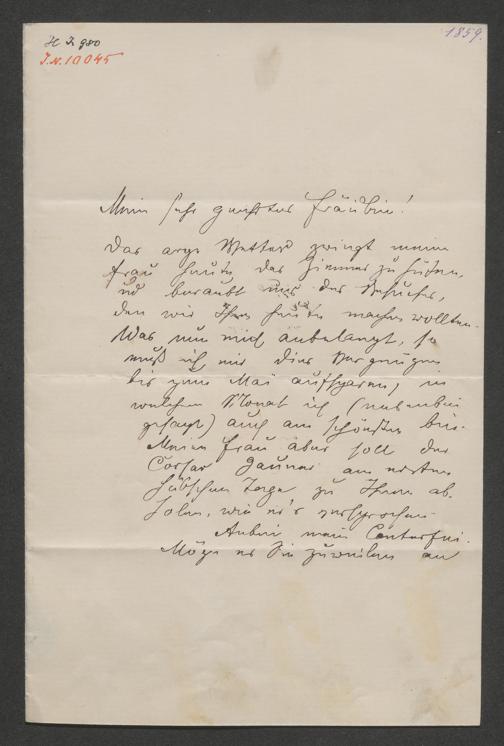 H I 980
I.N. 10045
1859.
Mein sehr geehrtes Fräulein!
Das arge Wetter zwingt meine
Frau heute das Zimmer zu hüten,
und beraubt uns des Besuches,
den wir Ihnen heute machen wollten.
Was nun mich anbelangt, so
muß ich mir dies Vergnügen
bis zum Mai aufsparen, in
welchem Monat ich (nebenbei
gesagt) auch am schönsten bin.
Meine Frau aber soll der
Corsar Gauner am ersten
hübschen Tage zu Ihnen ab-
holen, wie er's versprochen.
Anbei mein Conterfei.
Möge es Sie zuweilen an